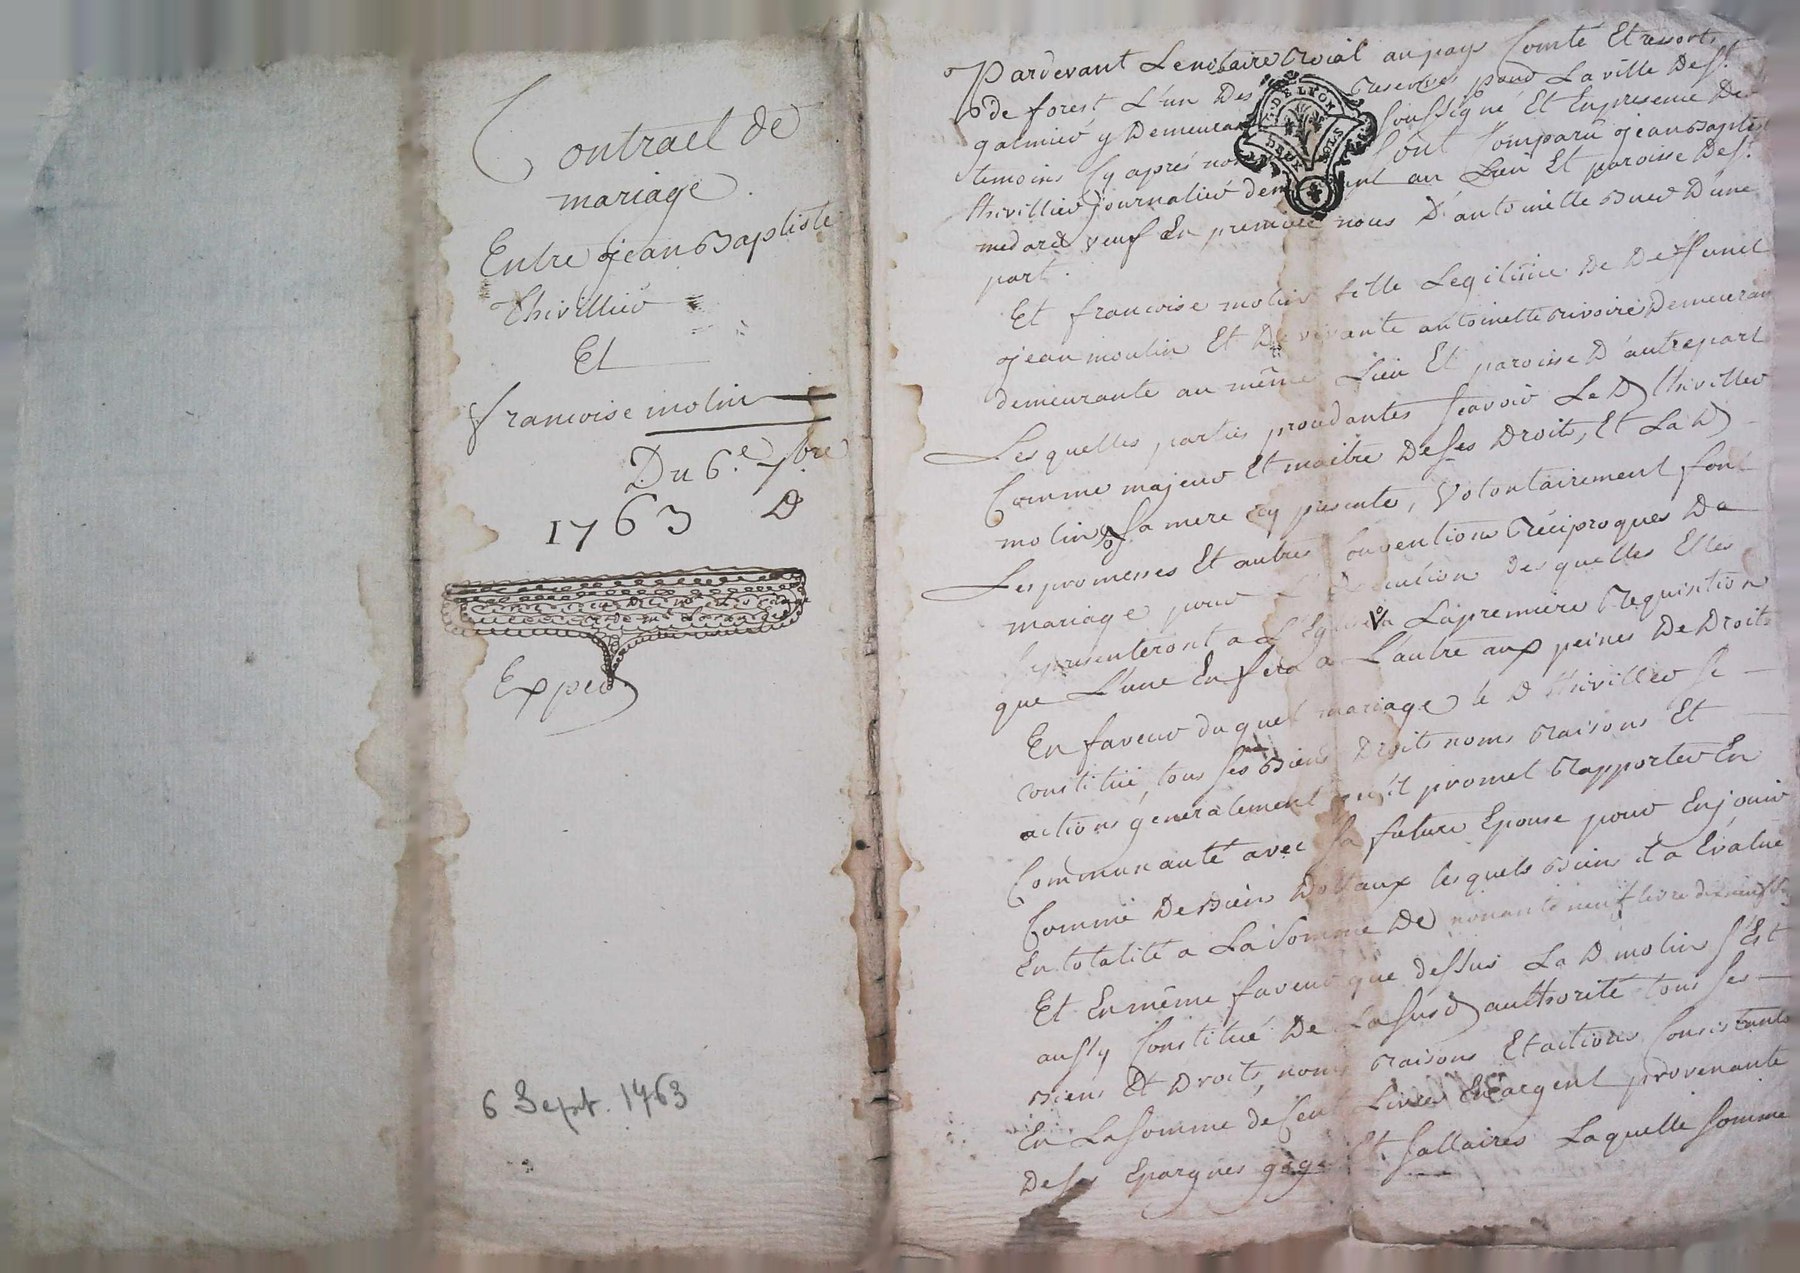 Contract de
mariage
Entre jean Baptiste
thivillier
Et
francoise molin
Du 6.e 7bre
1763 D
Exped
6 Sept. 1763
Pardevant Le notaire Roial au pays Comté Et ressort
de forest L'un Des reserves pour La ville De St.
galmier y Demeurant Soussigné Et En presence De
temoins Cy aprés nommes Sont Comparu jean Baptiste
thivillier journalier demeurant au Lieu Et paroisse De St.
medard veuf En premiere nous D'antoinette D'une
part.
G. DE LYON
DEUX SOLS
Et francoise molin fille Legitime De Deffunct
jean moulin Et De vivante antoinette rivoire Demeuran
demeurante au même Lieu Et paroisse D'autre part
Les quelles parties procedantes scavoir Le D thivillier
Comme majeur Et maitre De Ses Droits, Et La D
molin De Sa mere cy presente, Volontairement font
Les promesses Et autres Conventions Réciproques De
mariage pour L'Execution des quelles Elles
Se presenteront a L'Eglise a La premiere Requisition
que L'une En fera a L'autre aux peines De Droits
En faveur du quel mariage le D thivillier Se
constitué tous Ses Biens Droits noms Raisons Et
actions generalement qu'il promet Rapporter En
Communauté avec Sa future Epouse pour En jouir
Comme De Biens Dottaux lesquels Biens il a Evalué
En totalité a La Somme De nonante neuf livre
Et En même faveur que dessus La D molin S'Est
aussy Constitué De La Susd authorité tous Ses
Biens Et Droits, noms Raisons Et actions Consistants
En La Somme de Cent Livres En argent provenante
De Ses Epargnes gages Et Sallaires Laquelle Somme